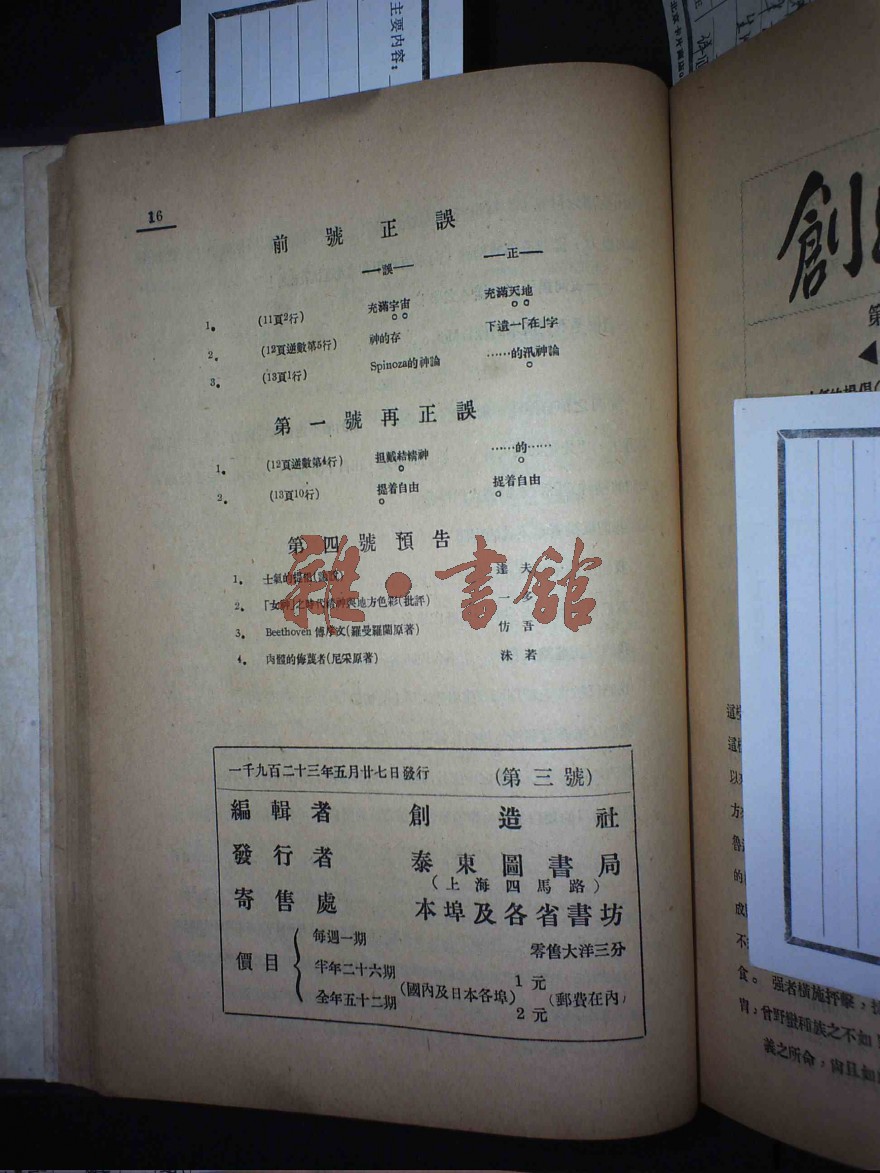 主要內容：
16
前號正誤
—誤— —正—
1。 (11頁2行) 充滿宇宙 充滿天地
2。 (12頁逆數第5行) 神的存 下遺一「在」字
3。 (13頁1行) Spinoza的神論 ……的汎神論
第一號再正誤
1。 (12頁逆數第4行) 担戴結犞神 ……的……
2。 (13頁10行) 提着自由 捉着自由
第四號預告
1。 士氣的提倡 達夫
2。 「女神」之時代精神與地方色彩(批評) 一多
3。 Beethoven 傳序文(羅曼羅蘭原著) 仿吾
4。 肉體的侮蔑者(尼采原著) 沫若
雜·書館
一千九百二十三年五月廿七日發行 (第三號)
編輯者 創造社
發行者 泰東圖書局
(上海四馬路)
寄售處 本埠及各省書坊
價目
每週一期 零售大洋三分
半年二十六期 1元
(國內及日本各埠) (郵費在內)
全年五十二期 2元
創
第
這些
這些
以
方
魯
的
成
不
食。强者橫施抨擊，
胄，曾野蠻種族之不如
義之所命，尙且如